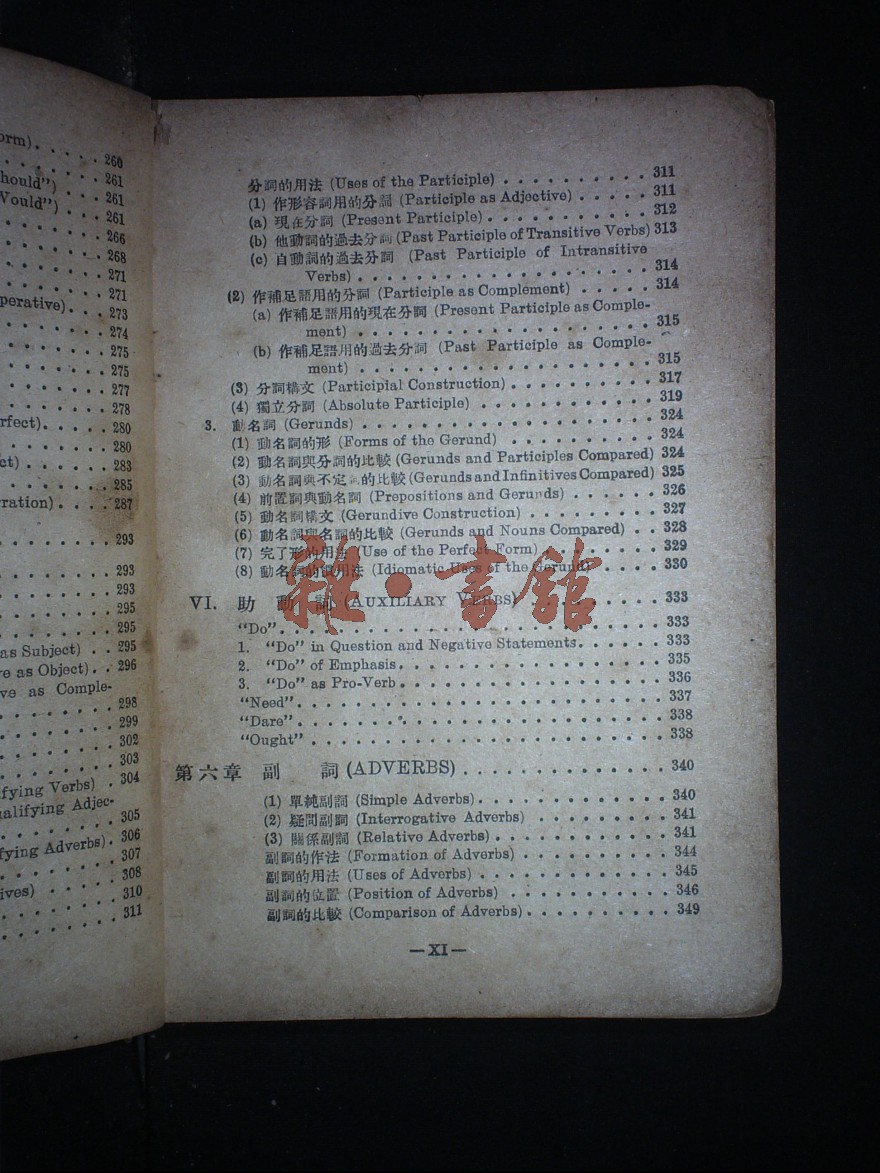 orm). . . . . 260
hould") . . . . 261
Vould") . . . . 261
. . . . . 261
. . . . . 266
. . . . . 268
. . . . . 271
. . . . . 271
perative). . . 273
. . . . . 274
. . . . . 275
. . . . . 275
. . . . . 277
. . . . . 278
rfect). . . . . 280
. . . . . 280
ct) . . . . . 283
. . . . . 285
ration) . . . . 287
. . . . . 293
. . . . . 293
. . . . . 293
. . . . . 295
. . . . . 295
as Subject) . . 295
e as Object). . 296
ve as Comple-
. . . . . 298
. . . . . 299
. . . . . 302
. . . . . 303
fying Verbs) . 304
ualifying Adjec-
. . . . . 305
fying Adverbs). 306
. . . . . 307
. . . . . 308
ives) . . . . . 310
. . . . . 311
分詞的用法 (Uses of the Participle) . . . . . . . . 311
(1) 作形容詞用的分詞 (Participle as Adjective) . . . . . 311
(a) 現在分詞 (Present Participle) . . . . . . . . . 312
(b) 他動詞的過去分詞 (Past Participle of Transitive Verbs) 313
(c) 自動詞的過去分詞 (Past Participle of Intransitive
Verbs) . . . . . . . . . . . . . . . 314
(2) 作補足語用的分詞 (Participle as Complement) . . . . . 314
(a) 作補足語用的現在分詞 (Present Participle as Comple-
ment) . . . . . . . . . . . . . . . 315
(b) 作補足語用的過去分詞 (Past Participle as Comple-
ment) . . . . . . . . . . . . . . . 315
(3) 分詞構文 (Participial Construction) . . . . . . . . 317
(4) 獨立分詞 (Absolute Participle) . . . . . . . . . . 319
3. 動名詞 (Gerunds) . . . . . . . . . . . . . . . 324
(1) 動名詞的形 (Forms of the Gerund) . . . . . . . . 324
(2) 動名詞與分詞的比較 (Gerunds and Participles Compared) 324
(3) 動名詞與不定詞的比較 (Gerunds and Infinitives Compared) 325
(4) 前置詞與動名詞 (Prepositions and Gerunds) . . . . . 326
(5) 動名詞構文 (Gerundive Construction) . . . . . . . 327
(6) 動名詞與名詞的比較 (Gerunds and Nouns Compared) . . 328
(7) 完了形的用法 (Use of the Perfect Form) . . . . . . 329
(8) 動名詞的慣用法 (Idiomatic Uses of the Gerund) . . . . 330
VI. 助動詞 (AUXILIARY VERBS) . . . . . . . . 333
"Do". . . . . . . . . . . . . . . . . . . 333
1. "Do" in Question and Negative Statements. . . . . 333
2. "Do" of Emphasis. . . . . . . . . . . . . . 335
3. "Do" as Pro-Verb . . . . . . . . . . . . . . 336
"Need". . . . . . . . . . . . . . . . . . 337
"Dare". . . . . . . . . . . . . . . . . . 338
"Ought" . . . . . . . . . . . . . . . . . 338
第六章 副 詞 (ADVERBS) . . . . . . . . . . . 340
(1) 單純副詞 (Simple Adverbs). . . . . . . . . . 340
(2) 疑問副詞 (Interrogative Adverbs) . . . . . . . 341
(3) 關係副詞 (Relative Adverbs) . . . . . . . . . 341
副詞的作法 (Formation of Adverbs) . . . . . . . . 344
副詞的用法 (Uses of Adverbs) . . . . . . . . . . 345
副詞的位置 (Position of Adverbs) . . . . . . . . . 346
副詞的比較 (Comparison of Adverbs). . . . . . . . 349
—XI—
雜·書館